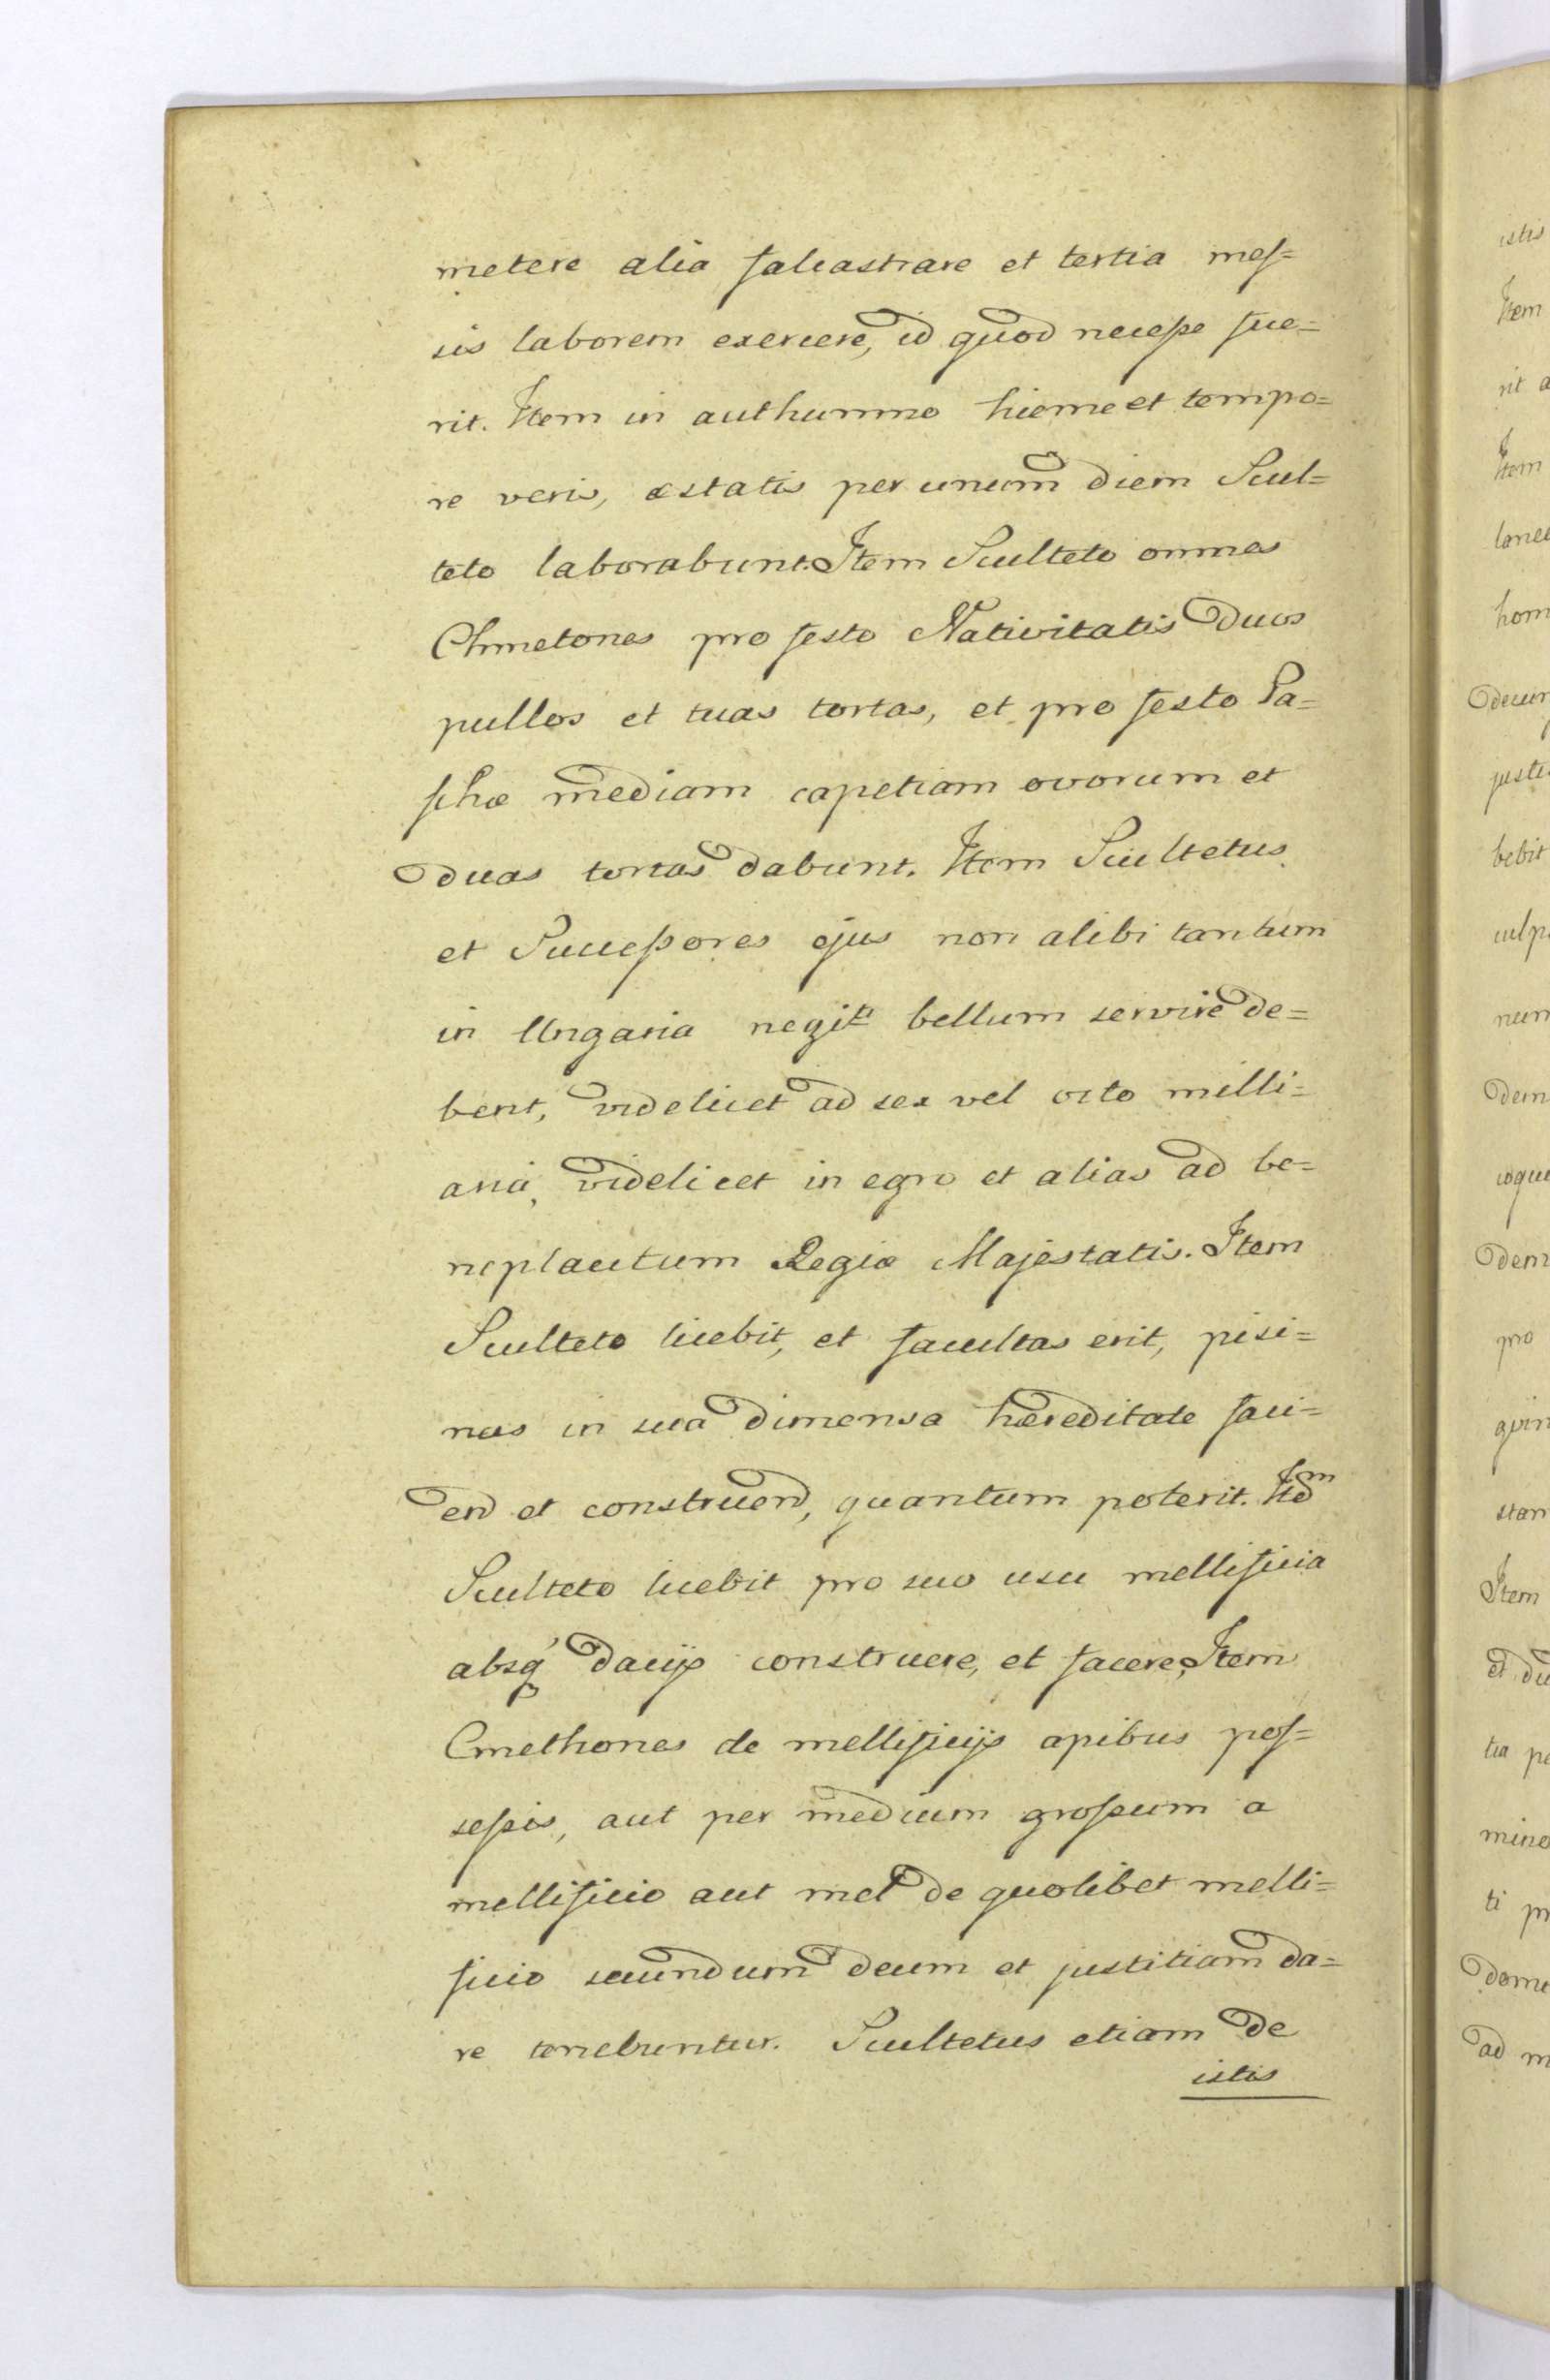 metere alia falcastrare et tertia mes=
sis laborem exercere, id quod necesse fue=
rit. Item in authumno hieme et tempo=
re veris, æstatis per unum diem Scul=
teto laborabunt. Item Sculteto omnes
Chmetones pro festo Nativitatis duos
pullos et tuas tortas, et pro festo Pa=
schæ mediam capetiam ovorum et
duas tortas dabunt. Item Scultetus
et Successores ejus non alibi tantum
in Ungaria bellum servire de=
bent, videlicet ad sex vel octo milli=
aria, videlicet in egro et alias ad be=
neplacitum Regiæ Majestatis. Item
Sculteto licebit, et facultas erit, pisi=
nas in sua dimensa hæreditate faci=
end et construend, quantum poterit. Item
Sculteto licebit pro suo usu mellificia
absq dacijs construere, et facere, Item
Cmethones de mellificijs apibus pos=
sessis, aut per medium grossum a
mellificio aut mel de quolibet melli=
ficio secundum deum et justitiam da=
re tenebuntur. Scultetus etiam de
istis
istis
Item
rit a
Item
lanee
hom
decur
justi
bebit
culp
num
dem
coque
dem
pro
quin
stan
Item
et du
tia pe
mino
ti pr
dome
ad m